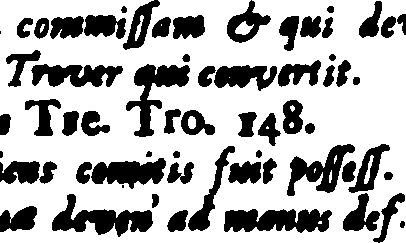 commiſſam & qui dev
Trover qui convertit.
Tre. Tro. 148.
iens comitis fuit poſſeſſ.
uæ deven' ad manus def.